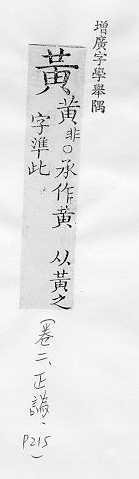 增廣字學舉隅
黃
黄非○承作黄 从黃之
字準此
(卷二、正譌、P215)